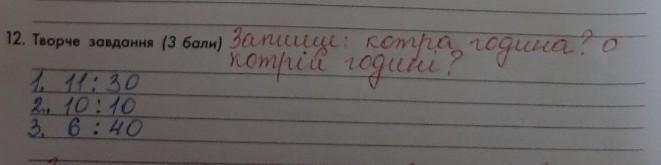 12. Творче завдання (3 бали) Запиши: котра година? о
котрій годині?
1. 11:30
2. 10:10
3. 6:40